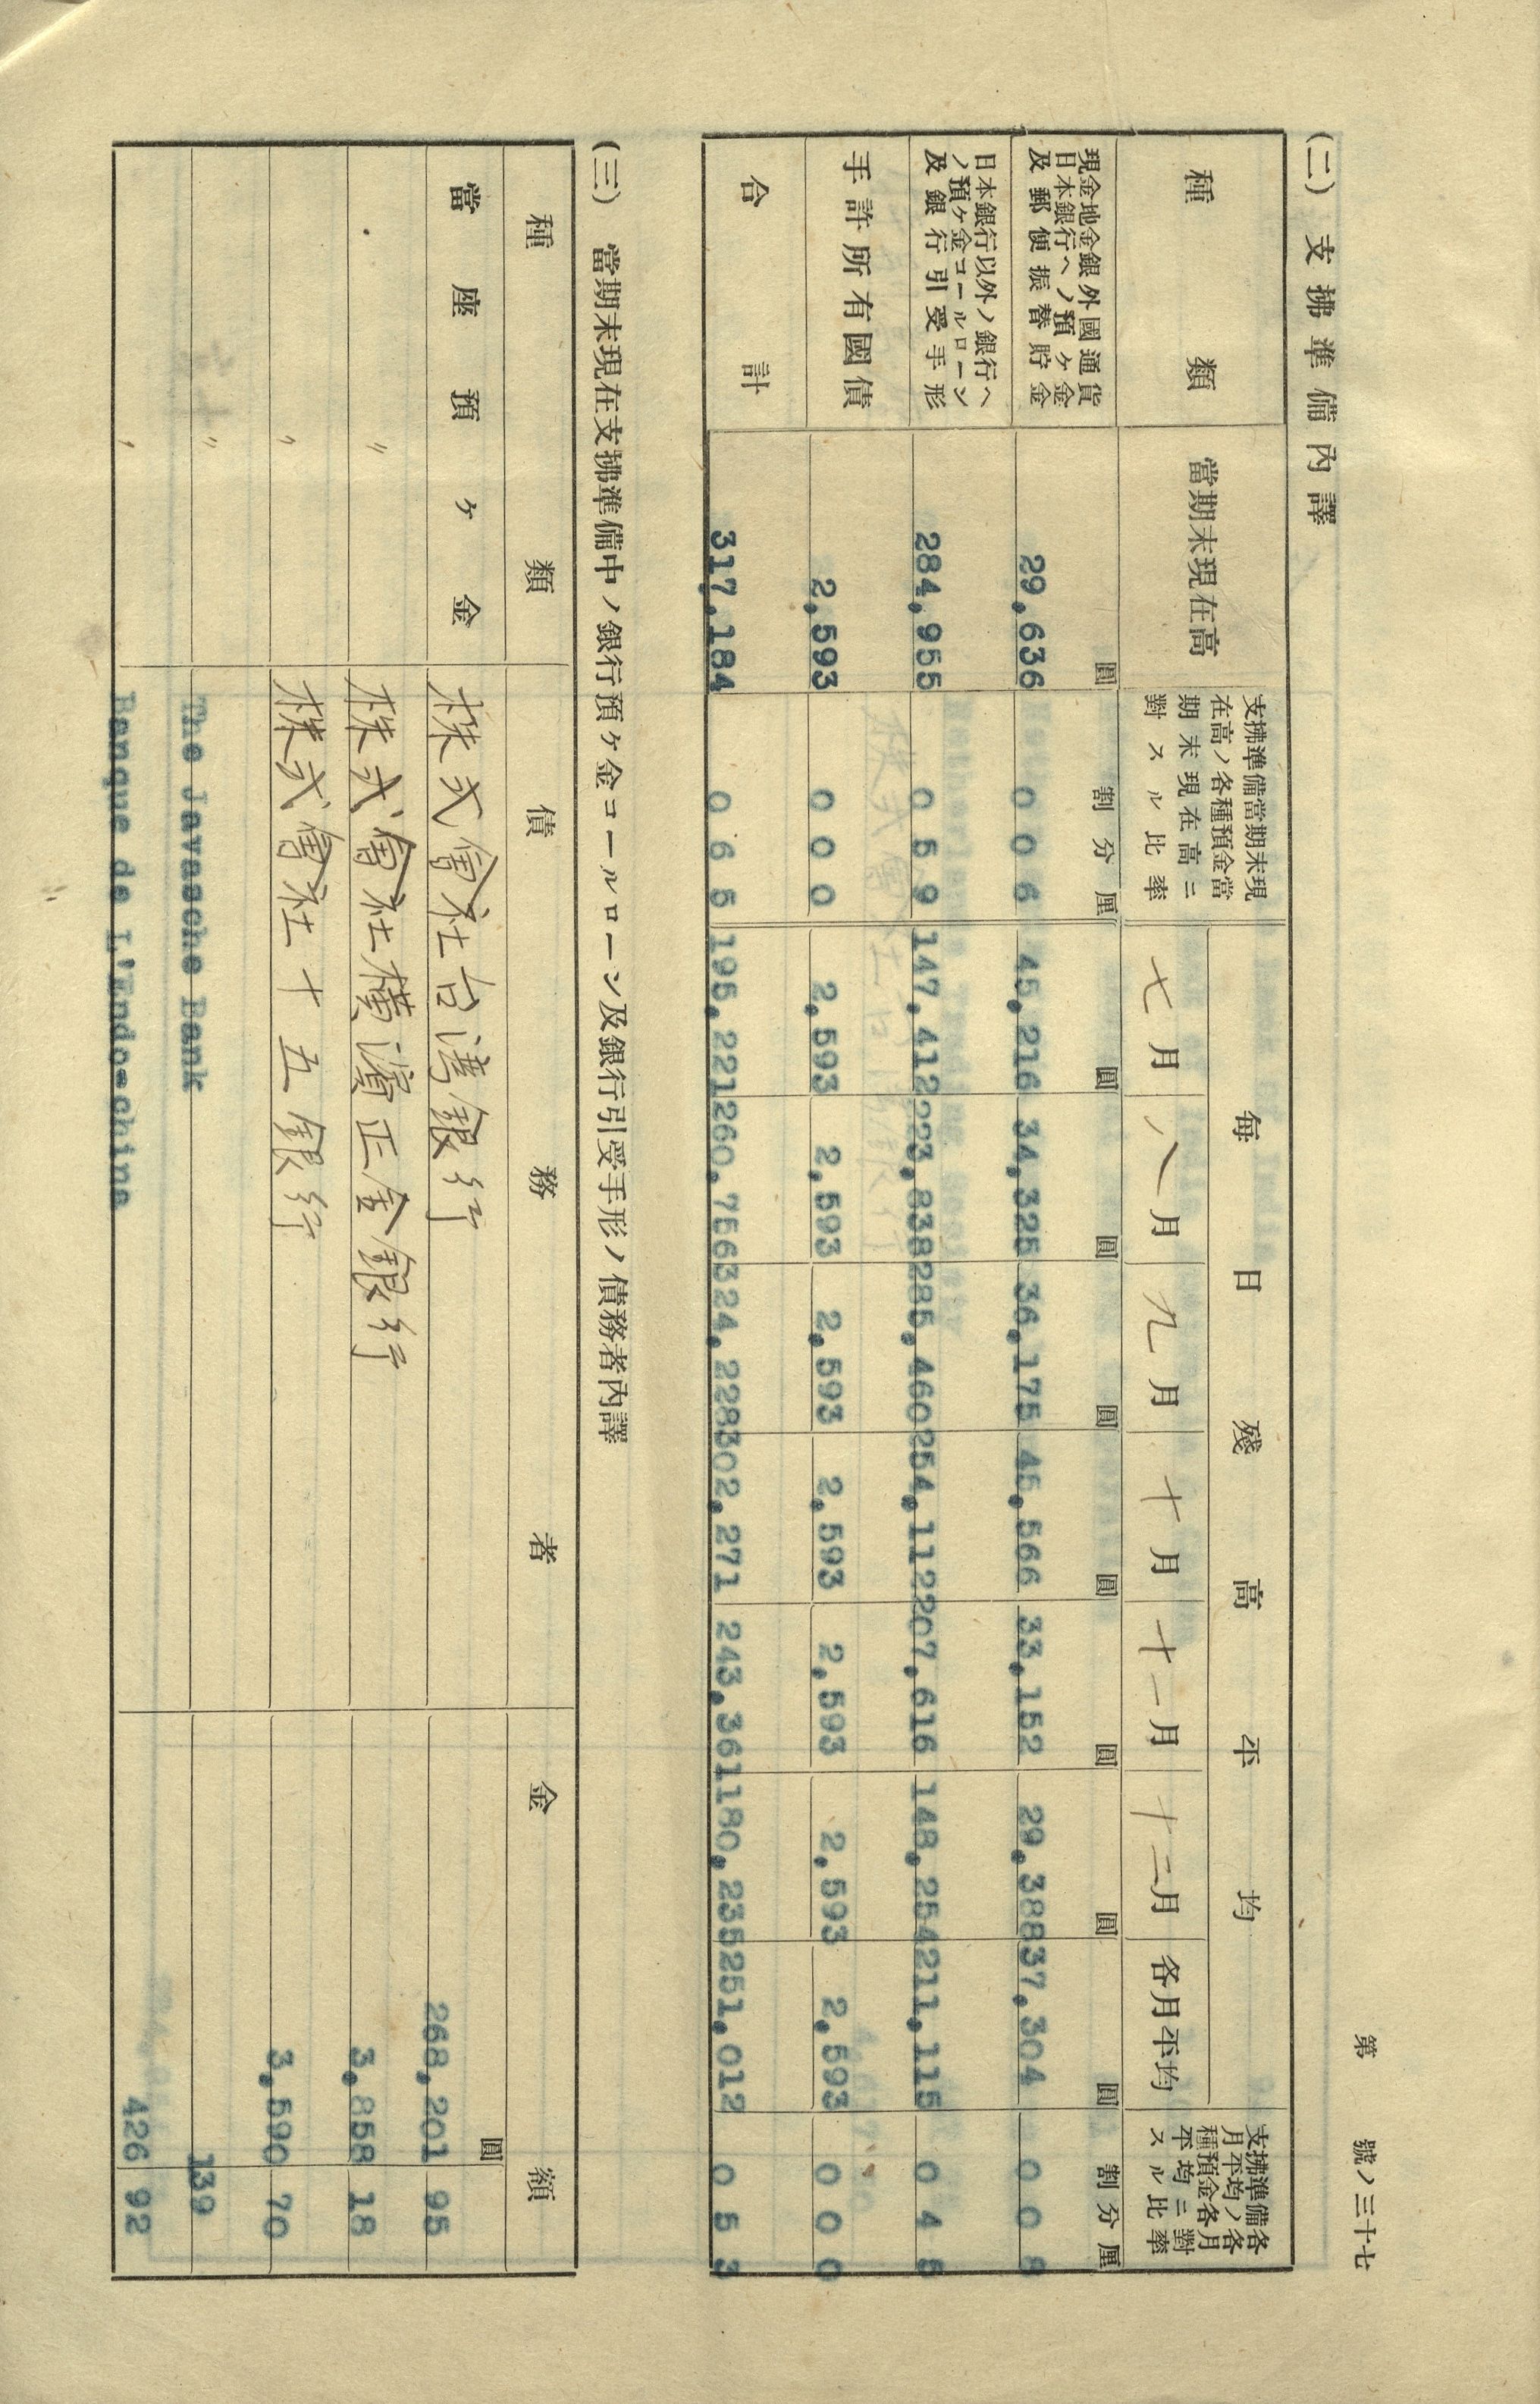 第 號ノ三十七
(二) 支拂準備內譯
種類 當期末現在高 支拂準備當期末現在高ノ各種預金當期末現在高ニ對スル比率 每日殘高平均 支拂準備各月平均ノ各種預金各月平均ニ對スル比率
七月 八月 九月 十月 十一月 十二月 各月平均
圓 割分厘 圓 圓 圓 圓 圓 圓 圓 割分厘
現金地金銀外國通貨日本銀行ヘノ預ケ金及郵便振替貯金 29,636 0 0 6 45,216 34,325 36,175 45,566 33,152 29,388 37,304 0 0 8
日本銀行以外ノ銀行ヘノ預ケ金コールローン及銀行引受手形 284,955 0 5 9 147,412 223,838 285,460 254,112 207,616 148,254 211,115 0 4 5
手許所有國債 2,593 0 0 0 2,593 2,593 2,593 2,593 2,593 2,593 2,593 0 0 0
合計 317,184 0 6 5 195,221 260,756 324,228 302,271 243,361 180,235 251,012 0 5 3
(三) 當期末現在支拂準備中ノ銀行預ケ金コールローン及銀行引受手形ノ債務者內譯
種類 債務者 金額
圓
當座預ケ金 株式會社台湾銀行 268,201 95
〃 株式會社橫濱正金銀行 3,858 18
〃 株式會社十五銀行 3,590 70
〃 The Javasche Bank 139
〃 Banque de L'Endo-chine 426 92